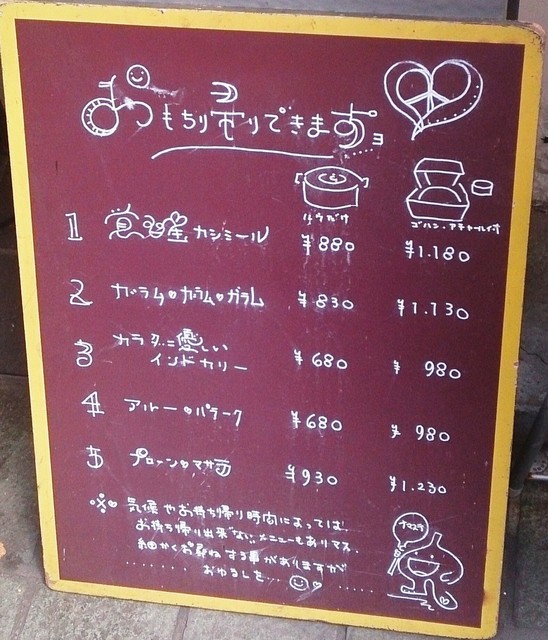 おもちり帰りできますョ
ルウだけ
ゴハン・アチャール付
1 カシミール ¥880 ¥1.180
2 ガラム・カラム・ガラム ¥830 ¥1.130
3 カラダに優しい
インドカリー ¥680 ¥980
4 アルー・パラーク ¥680 ¥980
5 プローン・マサラ ¥930 ¥1.230
※気候やお持ち帰り時間によっては
お持ち帰り出来ないメニューもありマス.
細かくお尋ねする事がありますが
おゆるしを...
ナマステ